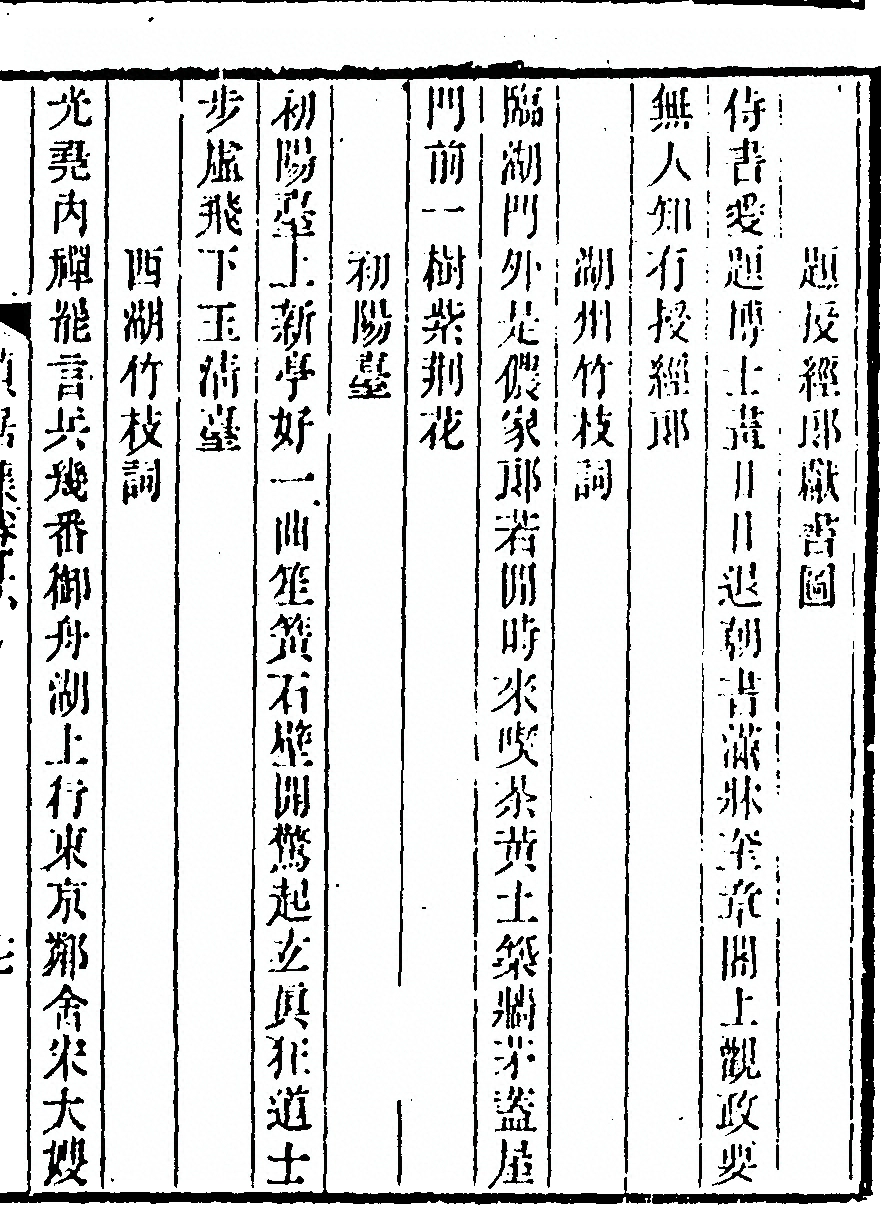 題授經郎獻書圖
侍書愛題博士畫日日退朝書滿牀奎章閣上觀政要
無人知有授經郎
湖州竹枝詞
臨湖門外是儂家郎若閒時來喫茶黃土築牆茅蓋屋
門前一樹紫荆花
初陽臺
初陽臺上新亭好一曲笙簧石壁開驚起玄眞狂道士
步虛飛下玉淸臺
西湖竹枝詞
光堯內禪罷言兵幾番御舟湖上行東京鄰舍宋大嫂